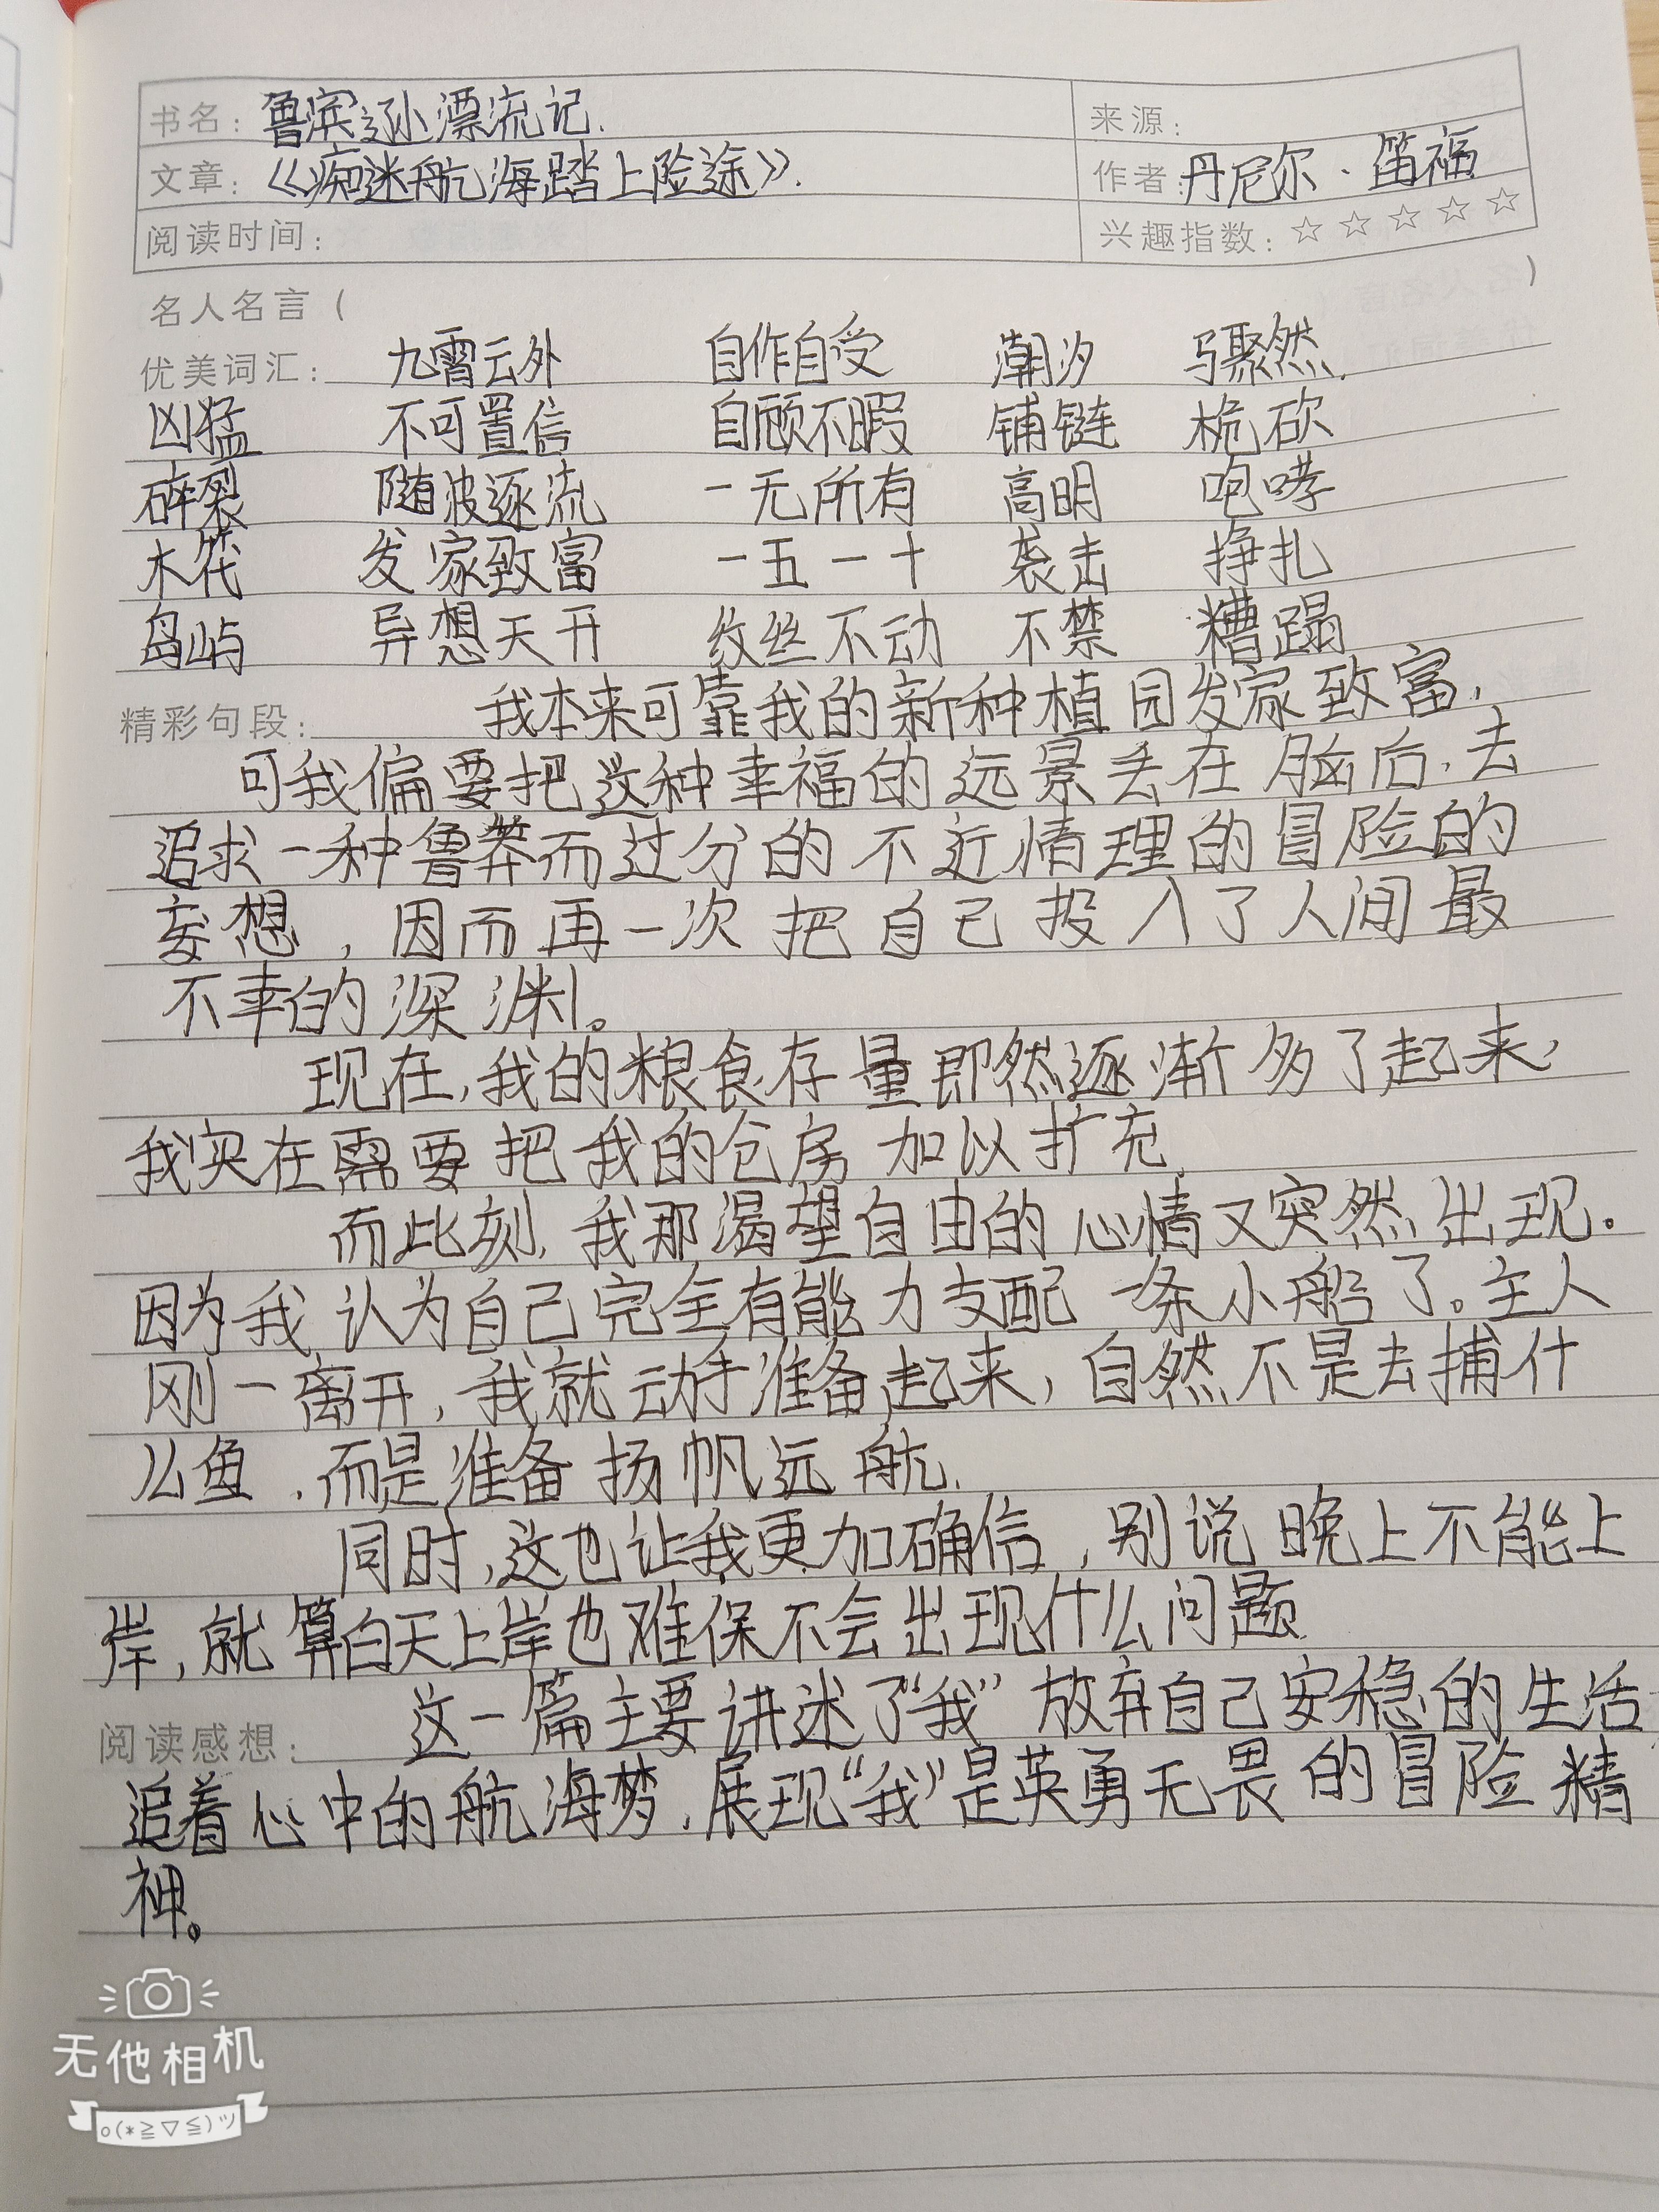 书名：鲁滨逊漂流记.
来源：
文章：《痴迷航海踏上险途》.
作者：丹尼尔·笛福
阅读时间：
兴趣指数：☆ ☆ ☆ ☆ ☆
名人名言（ ）
优美词汇： 九霄云外 自作自受 潮汐 骤然.
凶猛 不可置信 自顾不暇 铺链 桅砍
碎裂 随波逐流 一无所有 高明 咆哮
木筏 发家致富 一五一十 袭击 挣扎
岛屿 异想天开 纹丝不动 不禁 糟蹋
精彩句段： 我本来可靠我的新种植园发家致富，
可我偏要把这种幸福的远景丢在脑后，去
追求一种鲁莽而过分的不近情理的冒险的
妄想，因而再一次把自己投入了人间最
不幸的深渊。
现在，我的粮食存量即然逐渐多了起来，
我实在需要把我的仓房加以扩充.
而此刻，我那渴望自由的心情又突然出现。
因为我认为自己完全有能力支配一条小船了。主人
刚一离开，我就动手准备起来，自然不是去捕什
么鱼，而是准备扬帆远航.
同时，这也让我更加确信，别说晚上不能上
岸，就算白天上岸也难保不会出现什么问题.
阅读感想： 这一篇主要讲述了“我”放弃自己安稳的生活
追着心中的航海梦，展现“我”是英勇无畏的冒险精
神。
无他相机
o(*≧▽≦)ツ